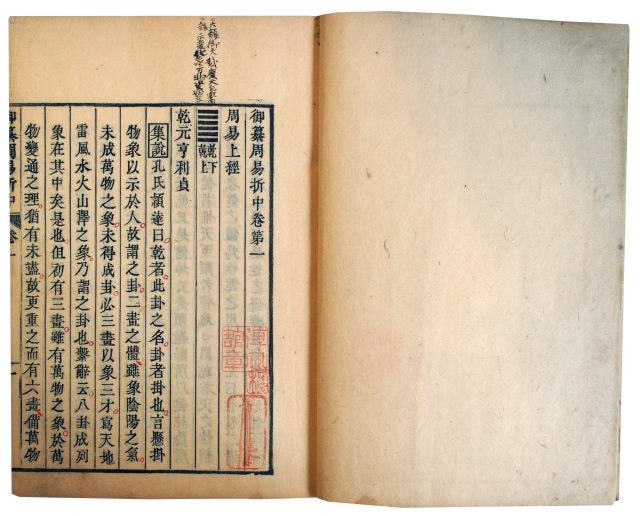 御纂周易折中卷第一
周易上經
䷀乾下乾上
乾元亨利貞
集說孔氏穎達曰乾者此卦之名卦者掛也言懸掛
物象以示於人故謂之卦二畫之體雖象陰陽之氣
未成萬物之象未得成卦必三畫以象三才寫天地
雷風水火山澤之象乃謂之卦也繫辭云八卦成列
象在其中矣是也但初有三畫雖有萬物之象於萬
物變通之理猶有未盡故更重之而有六畫備萬物
御纂周易折中 卷一